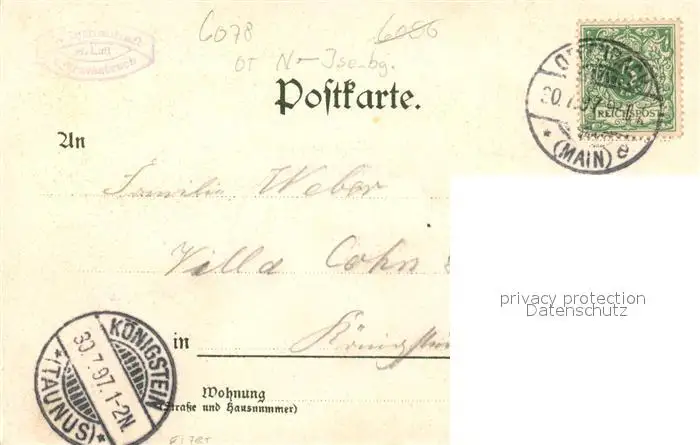 6078 6086
OT N-Isenbg.
M. Luft
Postkarte.
REICHSPOST
30.7.97
* (MAIN) e
An
Familie Weber
Villa Cohn
in Königstein
KÖNIGSTEIN
30.7.97.1-2N.
*(TAUNUS)*
Wohnung
(Straße und Hausnummer)
privacy protection
Datenschutz